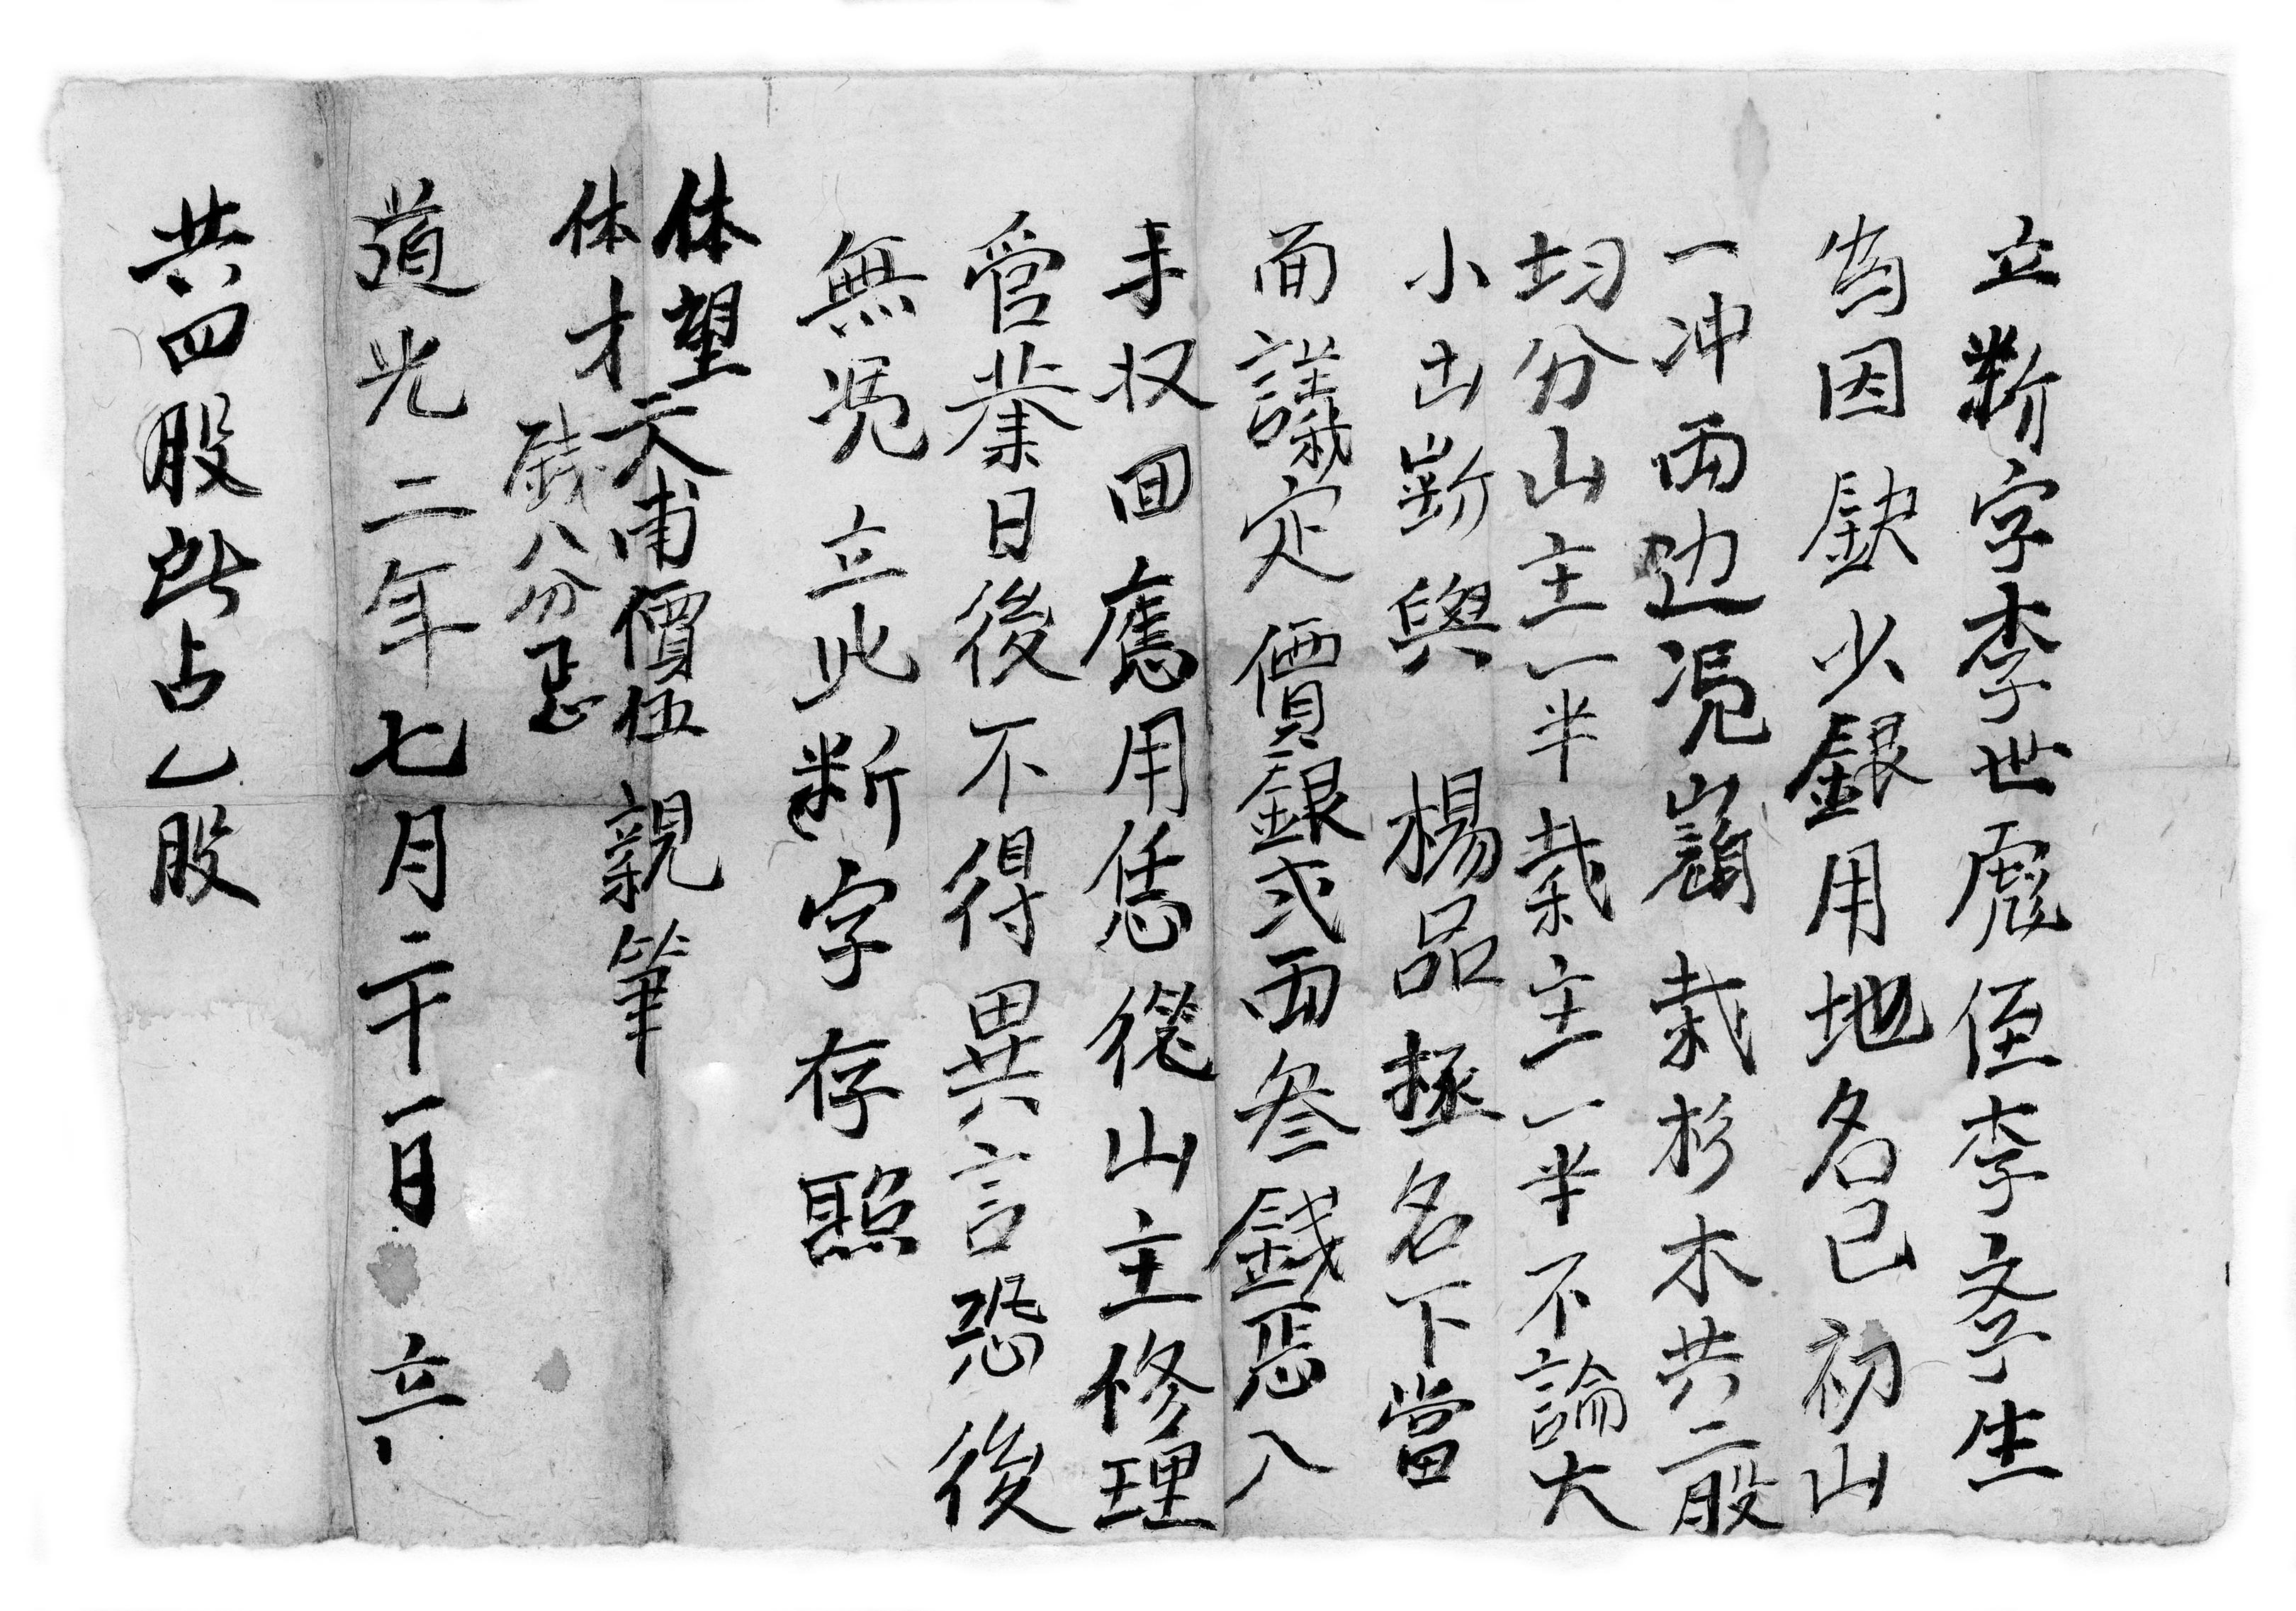 立断字李世彪侄李文生
為因缺少銀用地名己初山
一冲両边凴嶺栽杉木共二股
均分山主一半栽主一半不論大
小出断與楊品極名下當
面議定價銀弍両叁錢八
手収回應用恁從山主修理
管業日後不得異言恐後
無凴立此断字存照
体望天甫價伍親筆
体才錢八分
道光二年七月二十一日立
共四股此占乙股